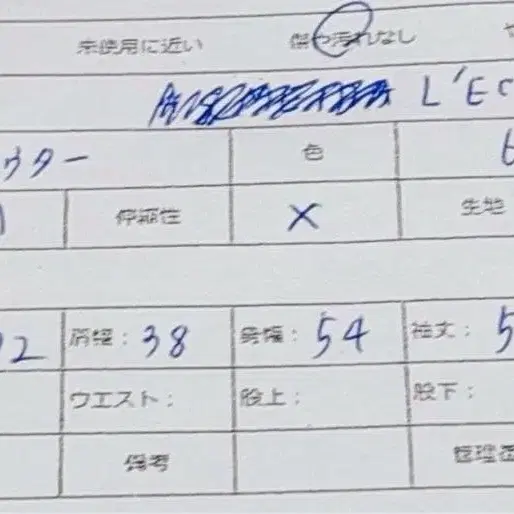 未使用に近い 傷や汚れなし
L'EC
ウター 色
伸縮性 × 生地
2 肩幅: 38 身幅: 54 袖丈: 5
ウエスト: 股上: 股下:
備考 管理番